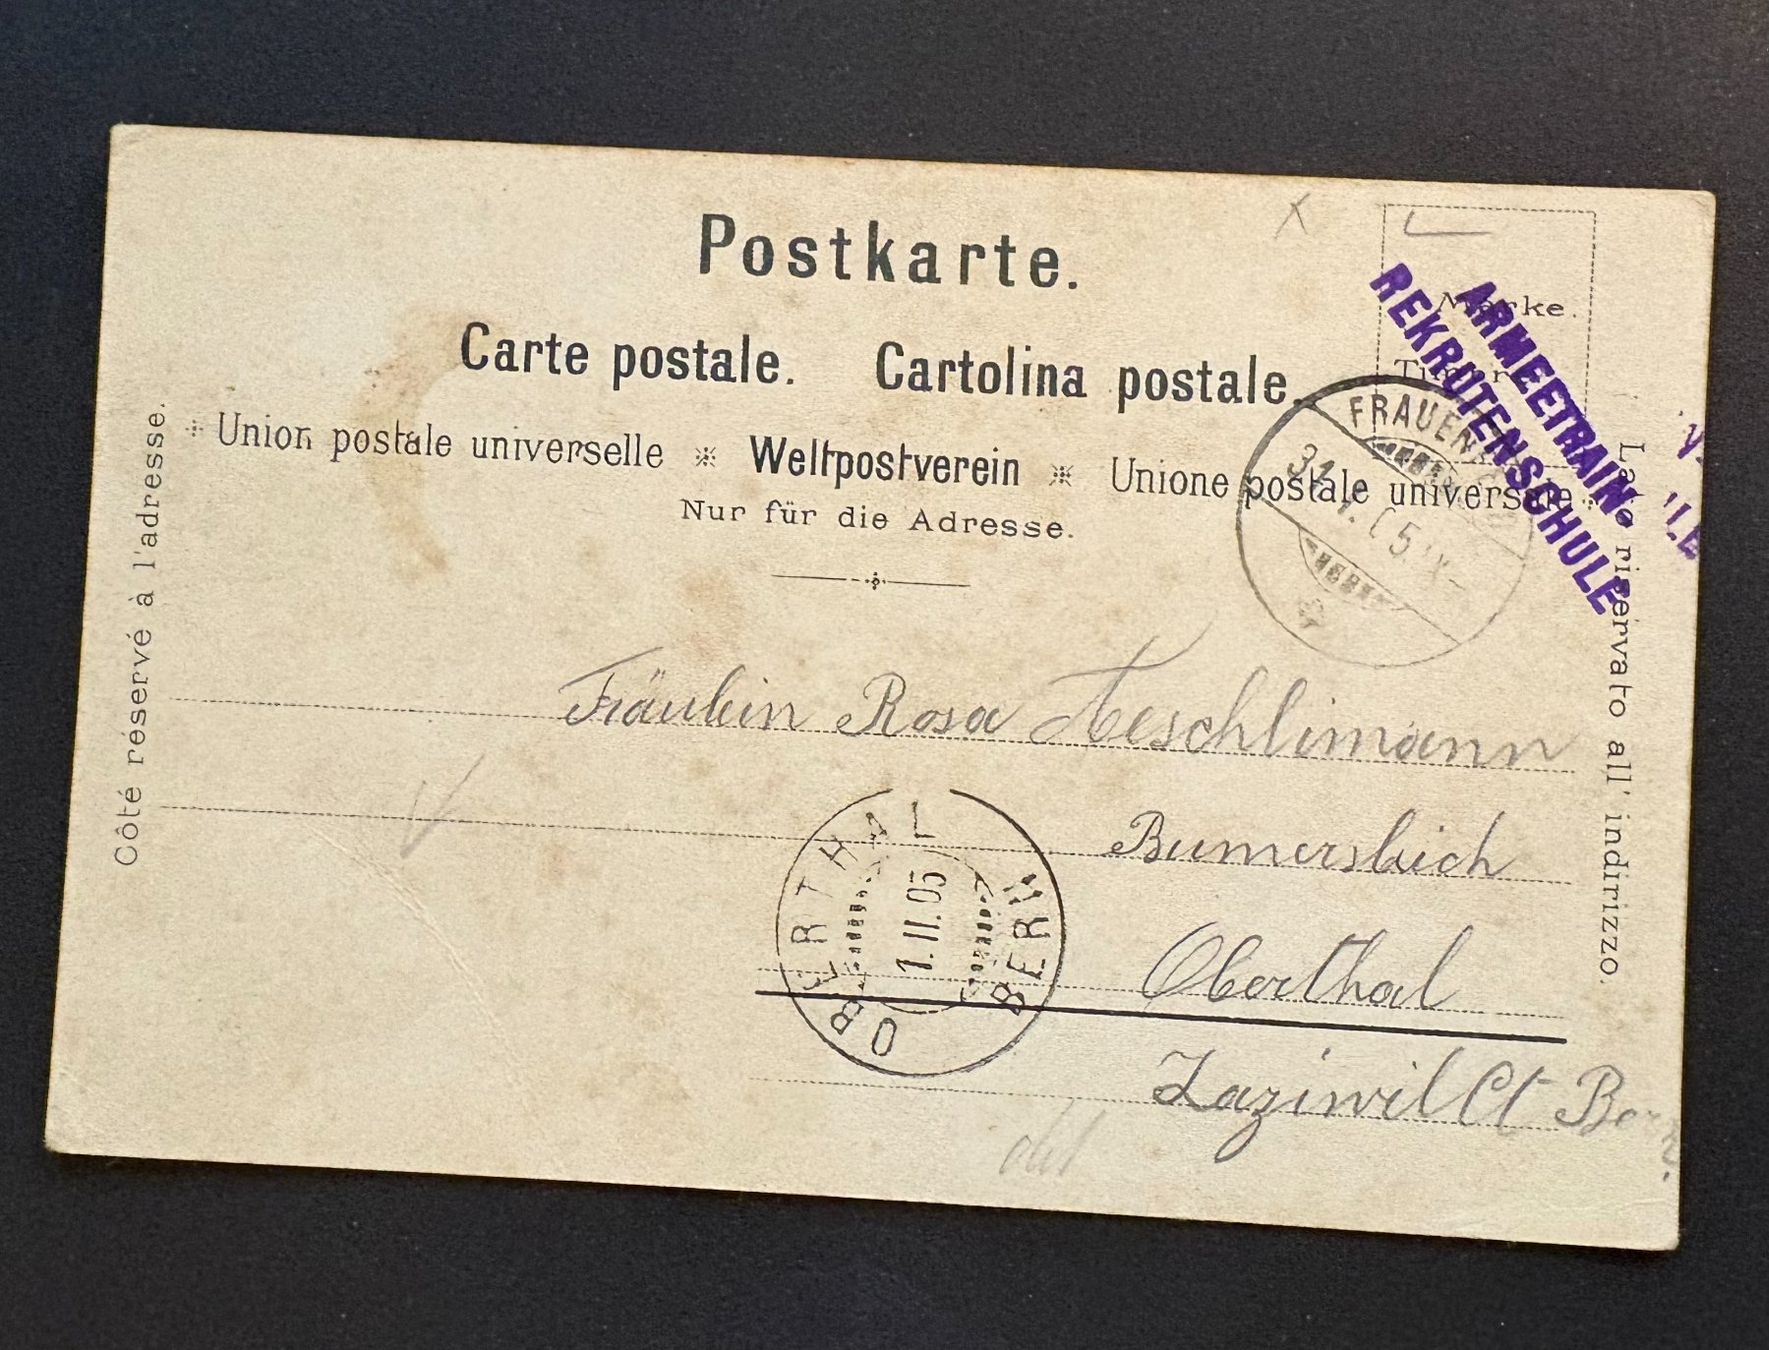 Postkarte.
Carte postale. Cartolina postale.
Union postale universelle Weltpostverein Unione postale universale
Nur für die Adresse.
Marke.
ARMEETRAIN-
REKRUTENSCHULE
FRAUEN
31. 05.
Côté réservé à l'adresse.
Lato riservato all' indirizzo.
Fräulein Rosa Aeschlimann
Oberthal
Zaziwil Ct Bern.
OBERTHAL
1.II.05
BERN